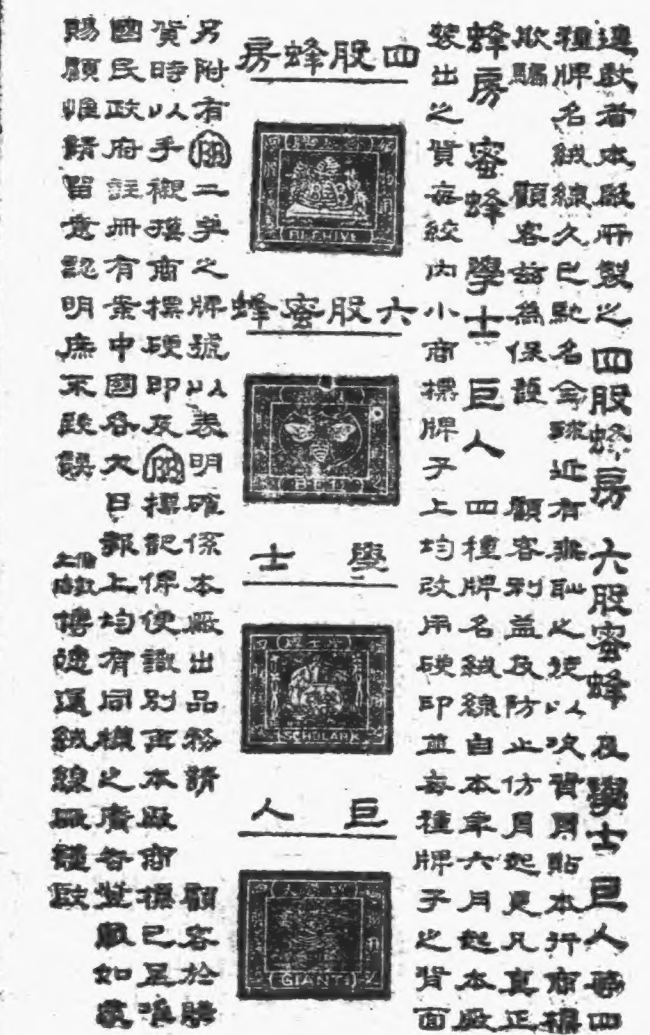 逕啟者本廠所製之四股蜂房 六股蜜蜂 及學士巨人等四
種牌名絨線久已馳名全球近有無恥之徒以次貨冒貼本行商標
欺騙 顧客茲為保護 顧客利益及防止仿冒起見凡真正
蜂房 蜜蜂 學士 巨人 四種牌名絨線自本年六月起本廠
裝出之貨每絞內小商標牌子上均改用硬印並每種牌子之背面
四股蜂房
BEEHIVE
六股蜜蜂
BEE
學士
SCHOLAR
巨人
GIANT
另附有 二爭之牌號以表明確係本廠出品務請 顧客於購
貨時以手襯摸商標硬印及 標記俾便識別再本廠商標已呈准
國民政府註冊有案中國各大日報上均有同樣之廣告登載如蒙
賜顧惟請留意認明庶不致誤
上海 博德運絨線廠謹啟